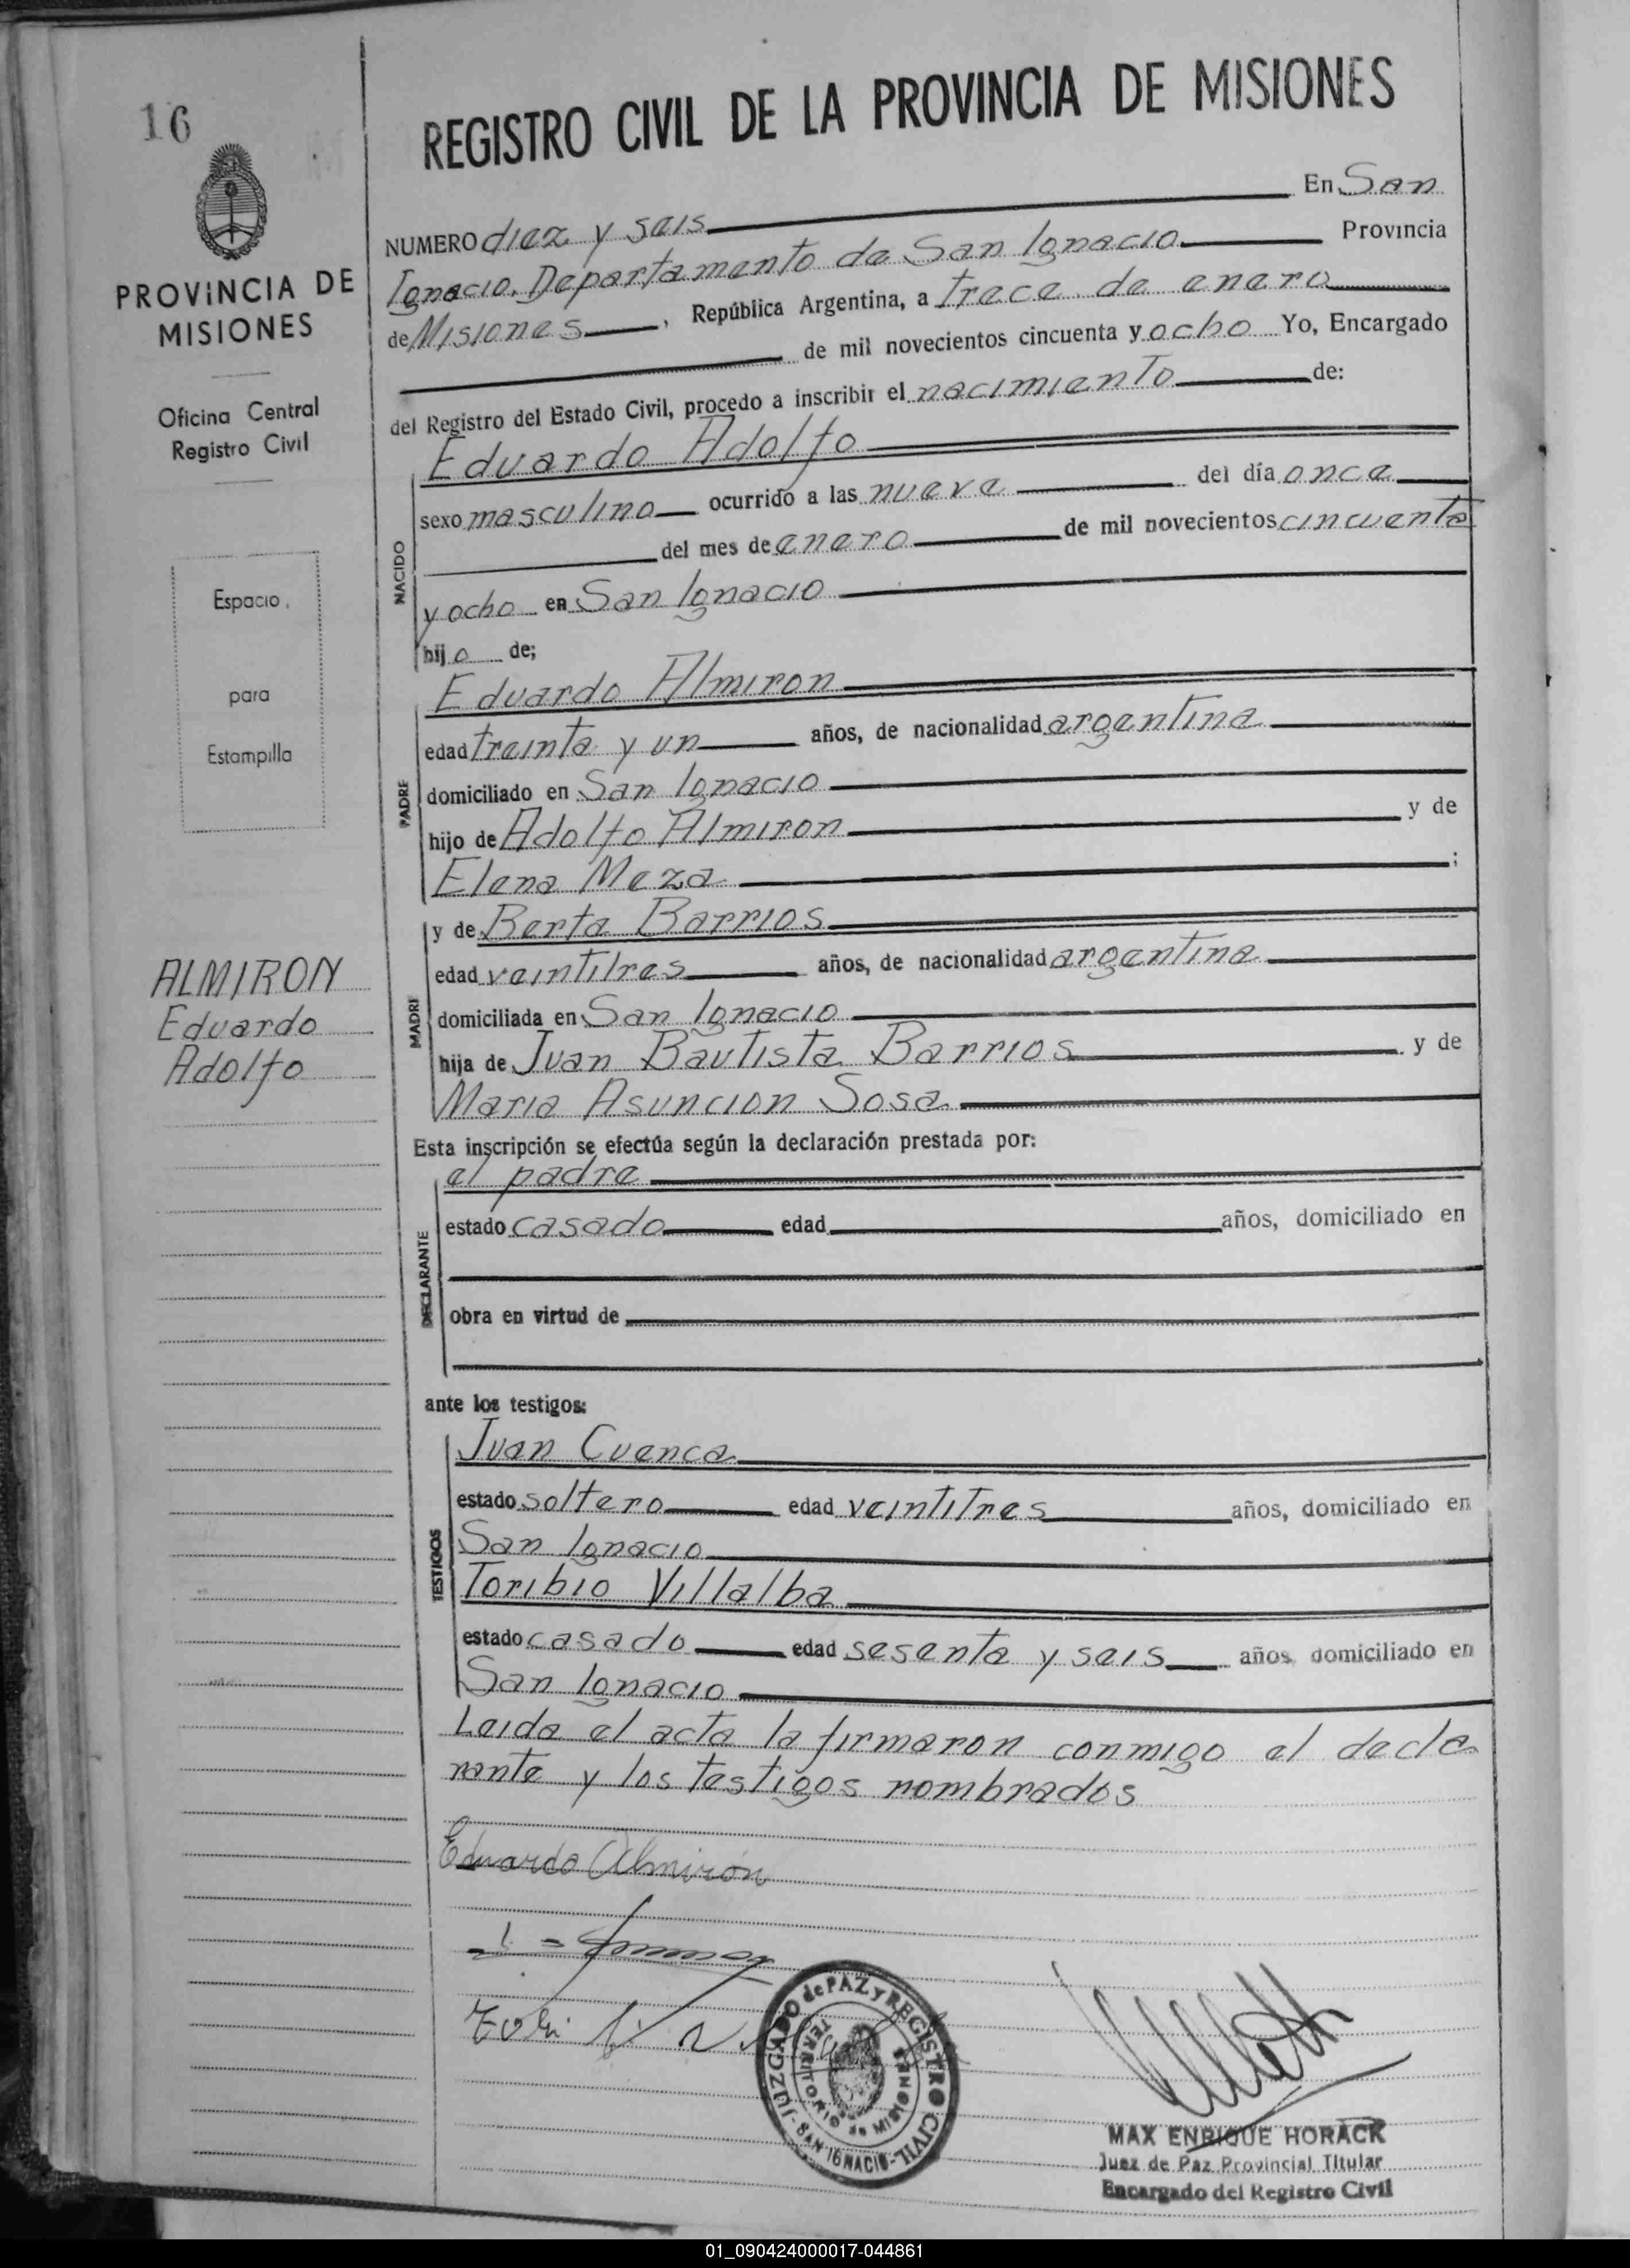 16
REGISTRO CIVIL DE LA PROVINCIA DE MISIONES
PROVINCIA DE
MISIONES
Oficina Central
Registro Civil
Espacio
para
Estampilla
ALMIRON
Eduardo
Adolfo
NUMERO diez y seis En San
Ignacio, Departamento de San Ignacio Provincia
de Misiones, República Argentina, a trece de enero
de mil novecientos cincuenta y ocho Yo, Encargado
del Registro del Estado Civil, procedo a inscribir el nacimiento de:
NACIDO
Eduardo Adolfo
sexo masculino ocurrido a las nueve del día once
del mes de enero de mil novecientos cincuenta
y ocho en San Ignacio
hijo de;
PADRE
Eduardo Almiron
edad treinta y un años, de nacionalidad argentina
domiciliado en San Ignacio
hijo de Adolfo Almiron y de
Elena Meza ;
MADRE
y de Berta Barrios
edad veintitres años, de nacionalidad argentina
domiciliada en San Ignacio
hija de Juan Bautista Barrios y de
Maria Asuncion Sosa
Esta inscripción se efectúa según la declaración prestada por:
DECLARANTE
el padre
estado casado edad años, domiciliado en
obra en virtud de
ante los testigos:
TESTIGOS
Juan Cuenca
estado soltero edad veintitres años, domiciliado en
San Ignacio
Toribio Villalba
estado casado edad sesenta y seis años domiciliado en
San Ignacio
Leida el acta la firmaron conmigo el decla
rante y los testigos nombrados
Eduardo Almirón
JUZGADO de PAZ y REGISTRO CIVIL
- SAN IGNACIO -
TERRITORIO de MISIONES
MAX ENRIQUE HORACK
Juez de Paz Provincial Titular
Encargado del Registro Civil
01_090424000017-044861